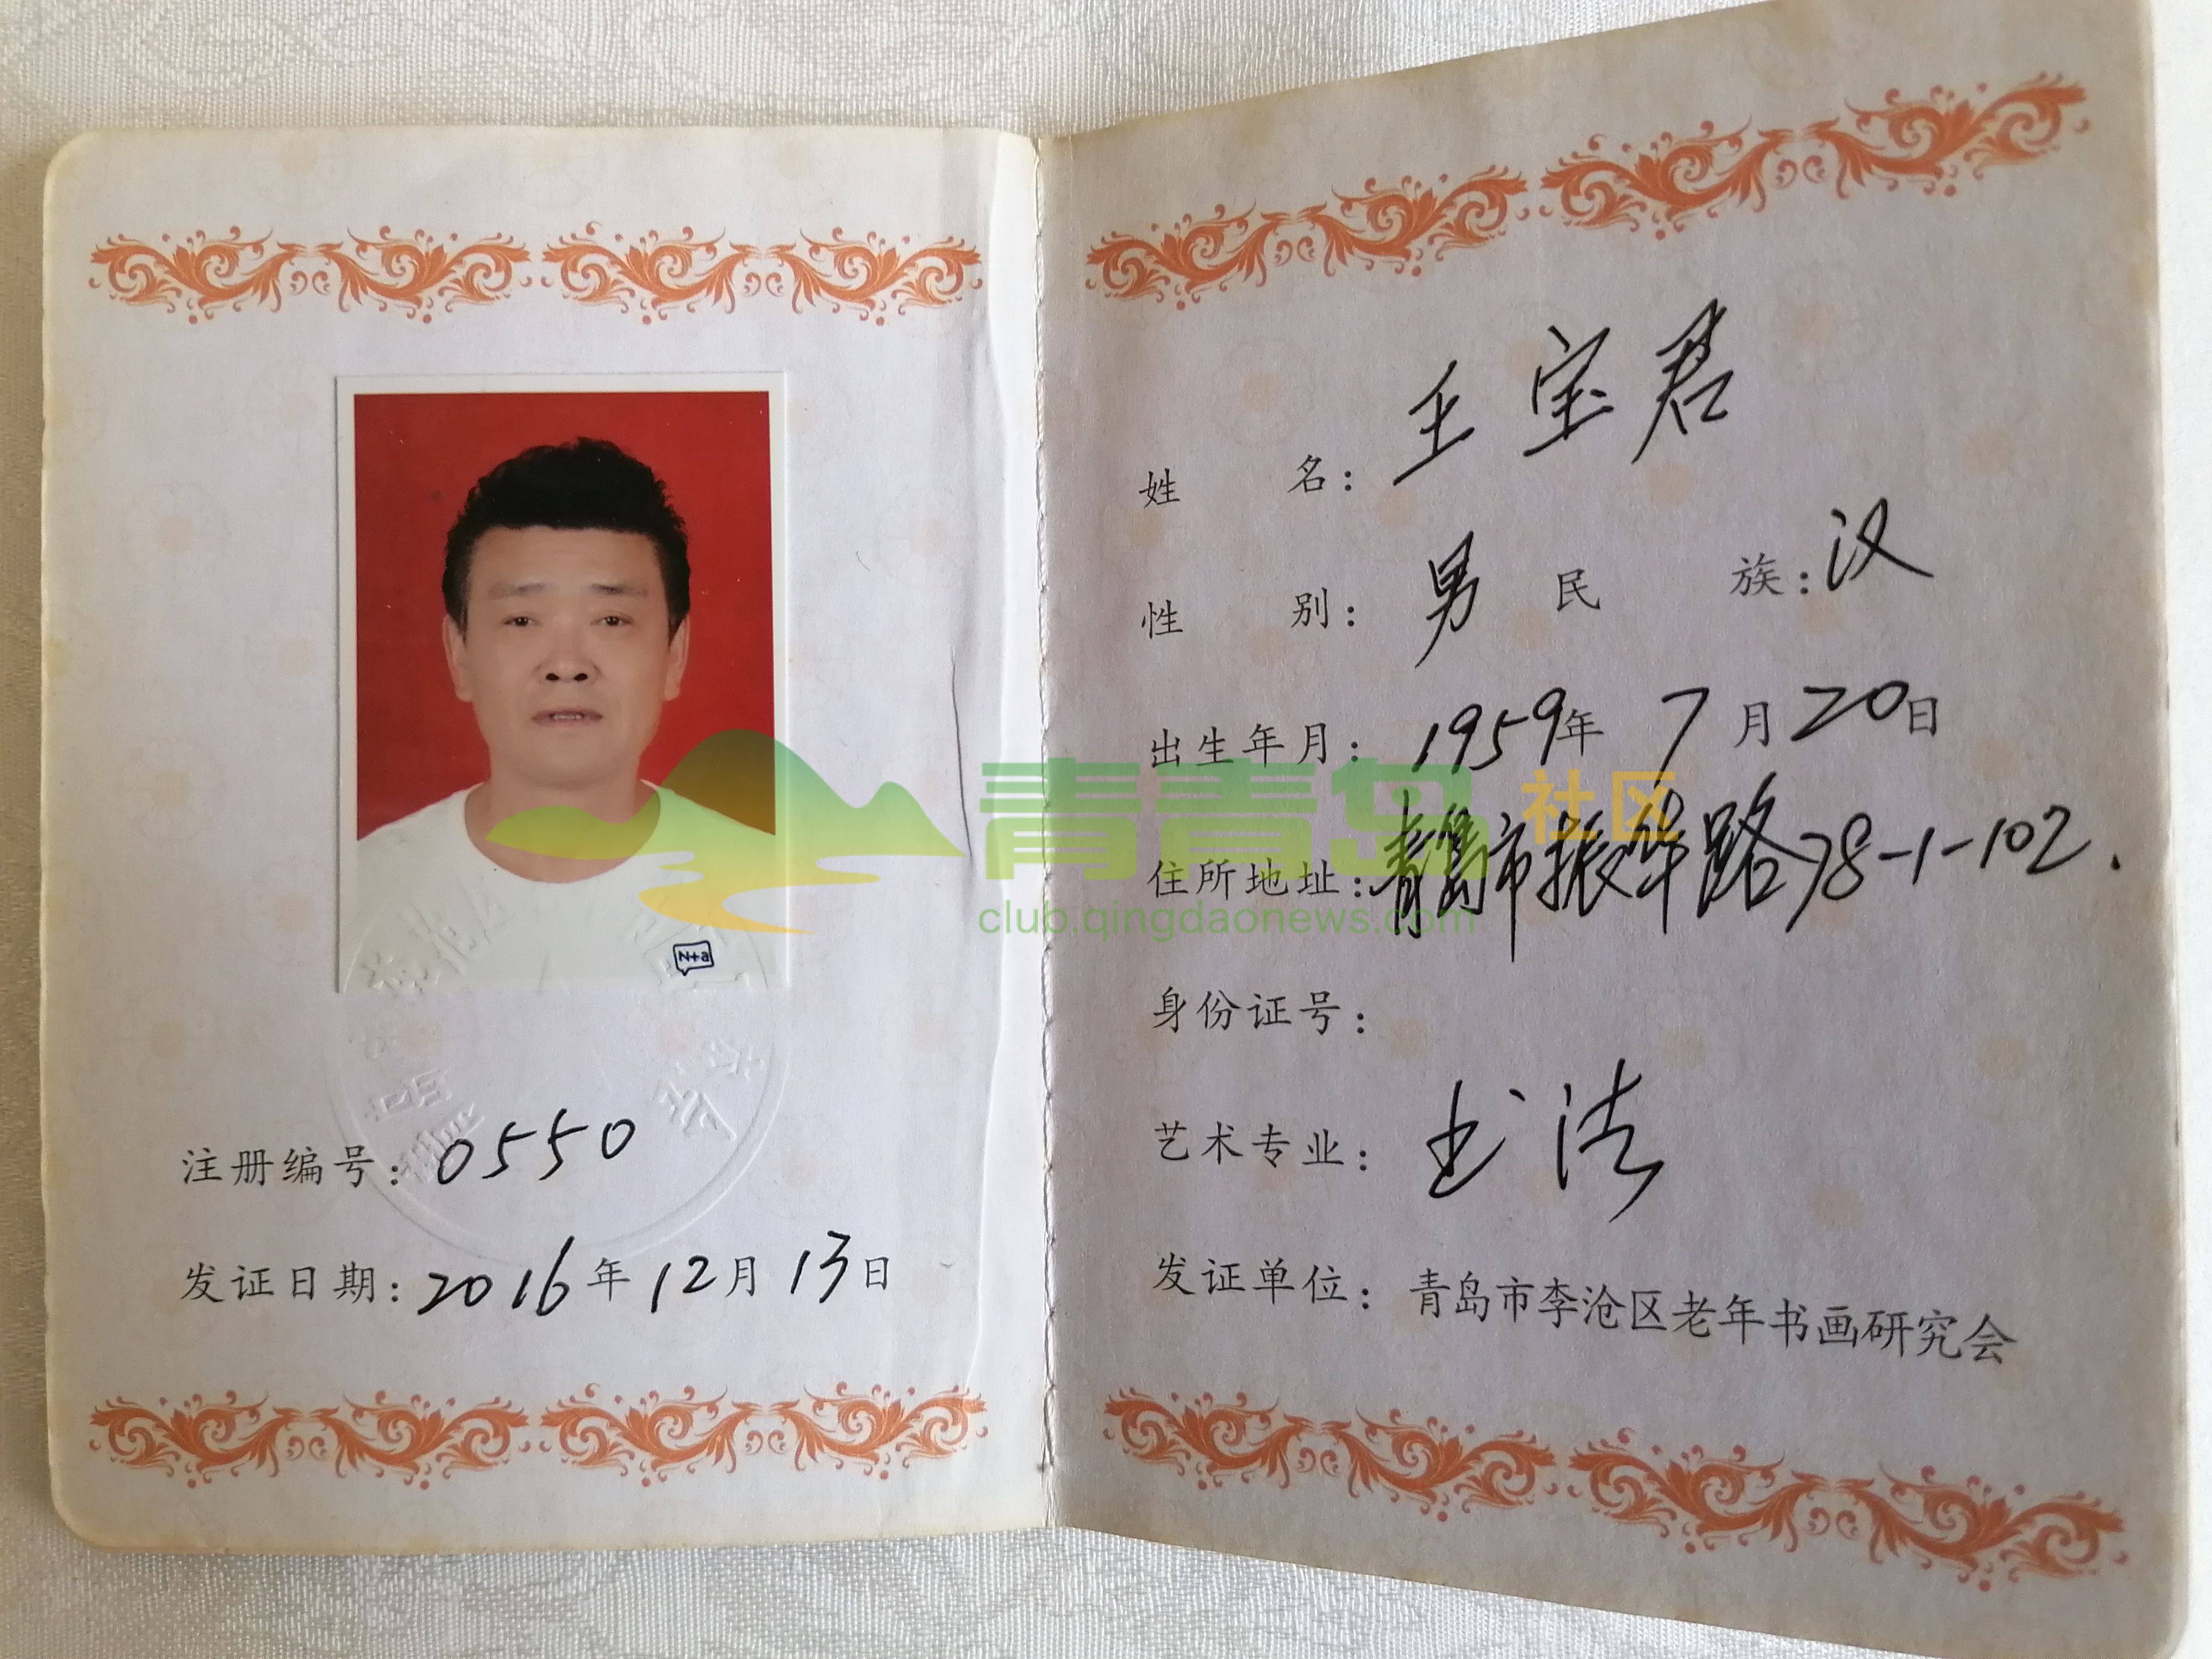 N+a
注册编号：0550
发证日期：2016年12月13日
姓名：王宝君
性别：男 民族：汉
出生年月：1959年7月20日
青青岛社区
住所地址：青岛市振华路78-1-102.
club.qingdaonews.com
身份证号：
艺术专业：书法
发证单位：青岛市李沧区老年书画研究会